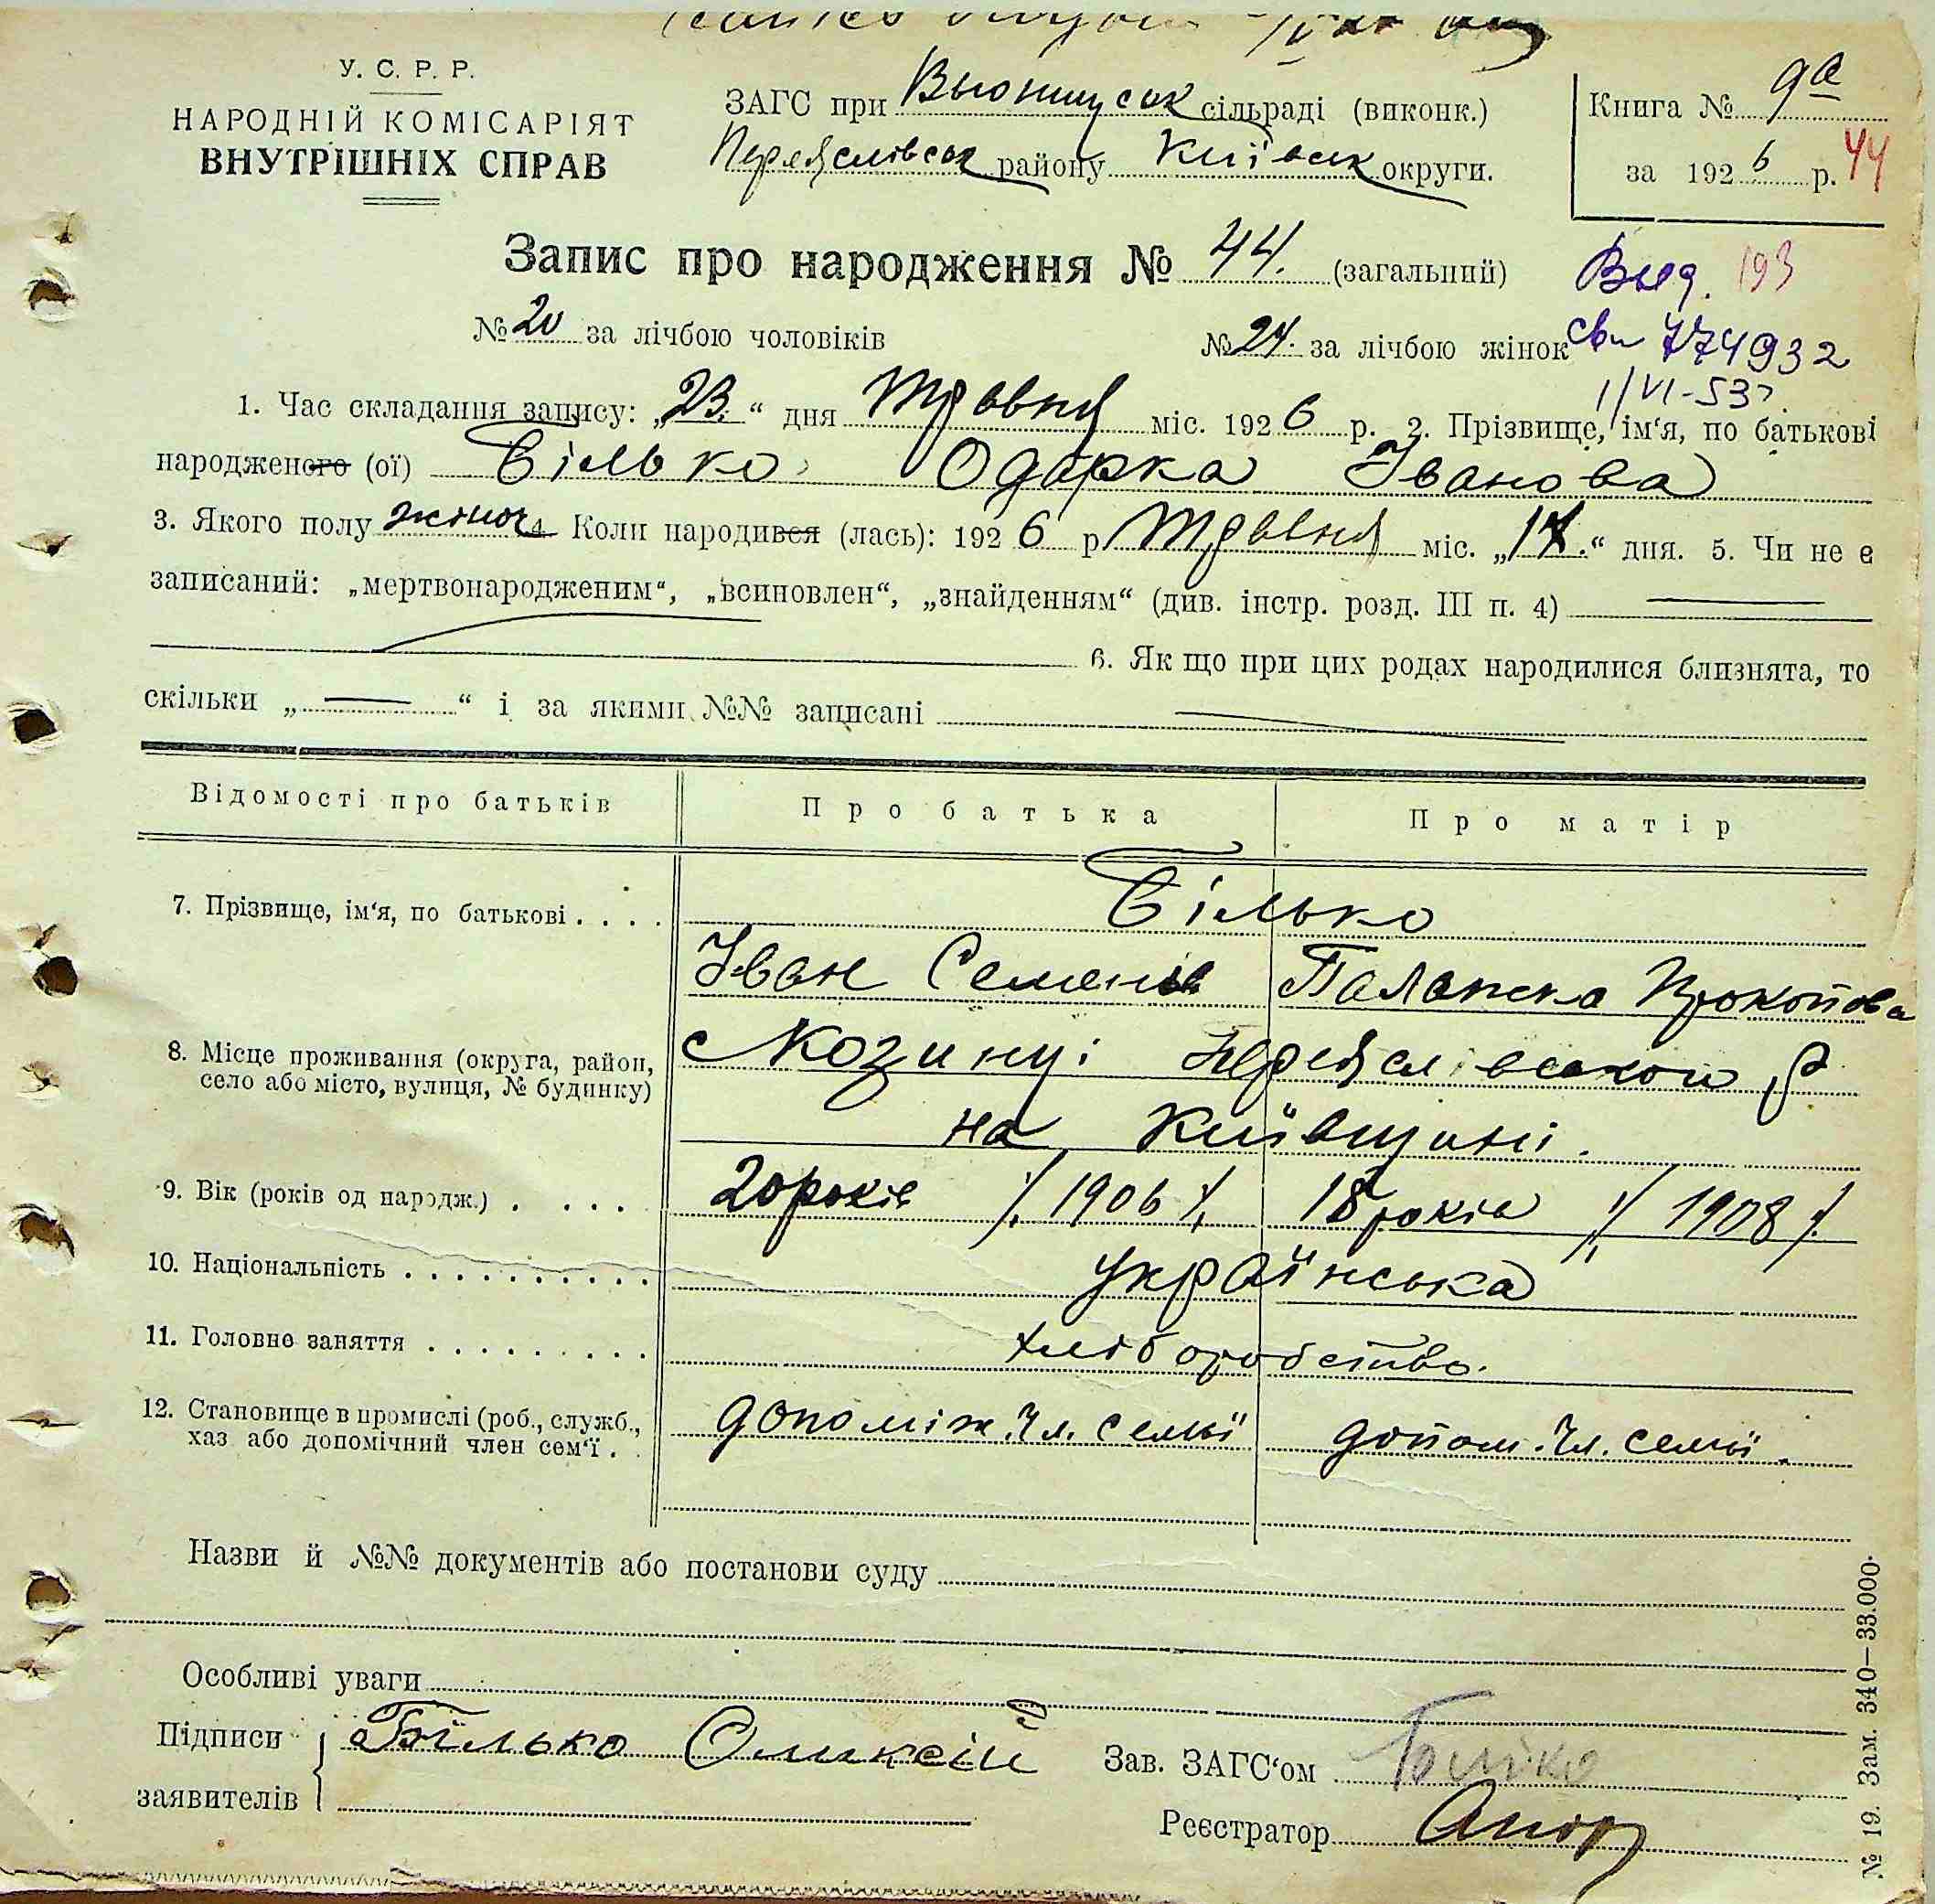 У. С. Р. Р.
НАРОДНІЙ КОМІСАРІЯТ
ВНУТРІШНІХ СПРАВ
ЗАГС при Вьюнищськ сільраді (виконк.)
Переяславськ району Київськ округи.
Книга № 9а
за 1926 р. 44
Запис про народження № 44. (загальний)
Выд. 193
№ 20 за лічбою чоловіків № 24. за лічбою жінок
св 774932
1/VI-53
1. Час складання запису: „23.“ дня травня міс. 1926 р. 2. Прізвище, ім‘я, по батькові
народженого (ої) Білько Одарка Іванова
3. Якого полу жіноч 4. Коли народився (лась): 1926 р. травня міс. „17.“ дня. 5. Чи не є
записаний: „мертвонародженим“, „всиновлен“, „знайденням“ (див. інстр. розд. III п. 4)
6. Як що при цих родах народилися близнята, то
скільки „ — “ і за якими №№ записані
Відомості про батьків Про батька Про матір
7. Прізвище, ім‘я, по батькові . . . . Білько
Іван Семенів Палажка Прокопова
8. Місце проживання (округа, район,
село або місто, вулиця, № будинку)
с Козинці Переяславського р
на Київщині.
9. Вік (років од народж.) . . . . 20 років /1906/ 18 років /1908/
10. Національність . . . . . . . . . . українська
11. Головне заняття . . . . . . . . . хліборобство.
12. Становище в промислі (роб., служб.,
хаз або допомічний член сем‘ї . .
допоміж. чл. семьї допом. чл. семьї.
Назви й №№ документів або постанови суду
Особливі уваги
Підписи
заявителів
Білько Оликсій
Зав. ЗАГС‘ом
Реєстратор
№ 19. Зам. 340—33.000.